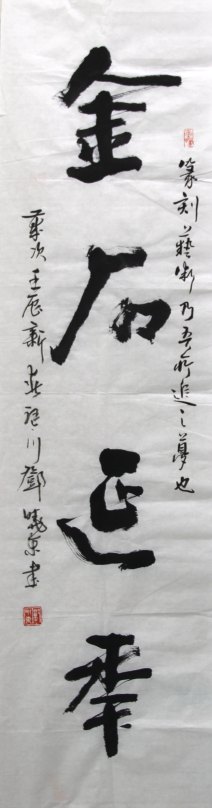 篆刻藝術乃吾所追之夢也
金石延年
歲次壬辰新春川鄧曉京書